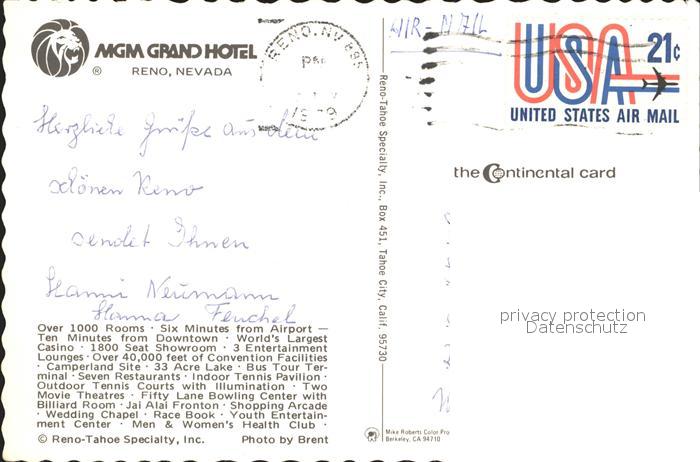 MGM GRAND HOTEL
®
RENO, NEVADA
RENO, NV 895
PM
1979
AIR-MAIL
USA 21c
UNITED STATES AIR MAIL
the Continental card
Herzliche Grüße aus dem
schönen Reno
sendet Ihnen
Hanni Neumann
Hanna Fenchel
Over 1000 Rooms · Six Minutes from Airport —
Ten Minutes from Downtown · World's Largest
Casino · 1800 Seat Showroom · 3 Entertainment
Lounges · Over 40,000 feet of Convention Facilities
· Camperland Site · 33 Acre Lake · Bus Tour Ter-
minal · Seven Restaurants · Indoor Tennis Pavilion ·
Outdoor Tennis Courts with Illumination · Two
Movie Theatres · Fifty Lane Bowling Center with
Billiard Room · Jai Alai Fronton · Shopping Arcade
· Wedding Chapel · Race Book · Youth Entertain-
ment Center · Men & Women's Health Club ·
© Reno-Tahoe Specialty, Inc. Photo by Brent
Reno-Tahoe Specialty, Inc., Box 451, Tahoe City, Calif. 95730
privacy protection
Datenschutz
Mike Roberts Color Pro
Berkeley, CA 94710